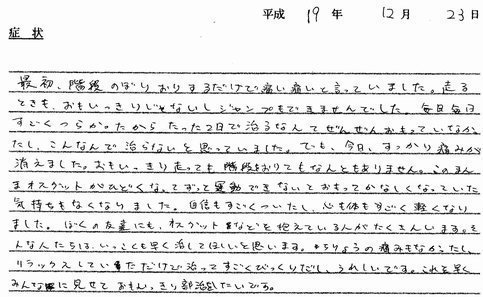 平成 19 年 12 月 23 日
症 状
最初、階段のぼりおりするだけで痛い痛いと言っていました。走る
ときも、おもいっきりじゃないしジャンプもできませんでした。毎日毎日
すごくつらかったから たった2日で治るなんてぜんぜんおもっていなかっ
たし、こんなんで治らないと思っていました。でも、今日、すっかり痛みが
消えました。おもいっきり走っても階段をおりてもなんともありません。このまん
まオスグットがひどくなってずって運動できないておもってかなしくなっていた
気持ちもなくなりました。自信もすごくついたし、心も体もすごく軽くなり
ました。ぼくの友達にも、オスグットなどを抱えている人がたくさんいます。そ
んな人たちは、いっこくも早く治してほしいと思います。ちりょうの痛みもなかったし、
リラックスしていただけで治ってすごくびっくりだし、うれしいです。これを早く
みんなに見せておもいっきり部活をしたいです。